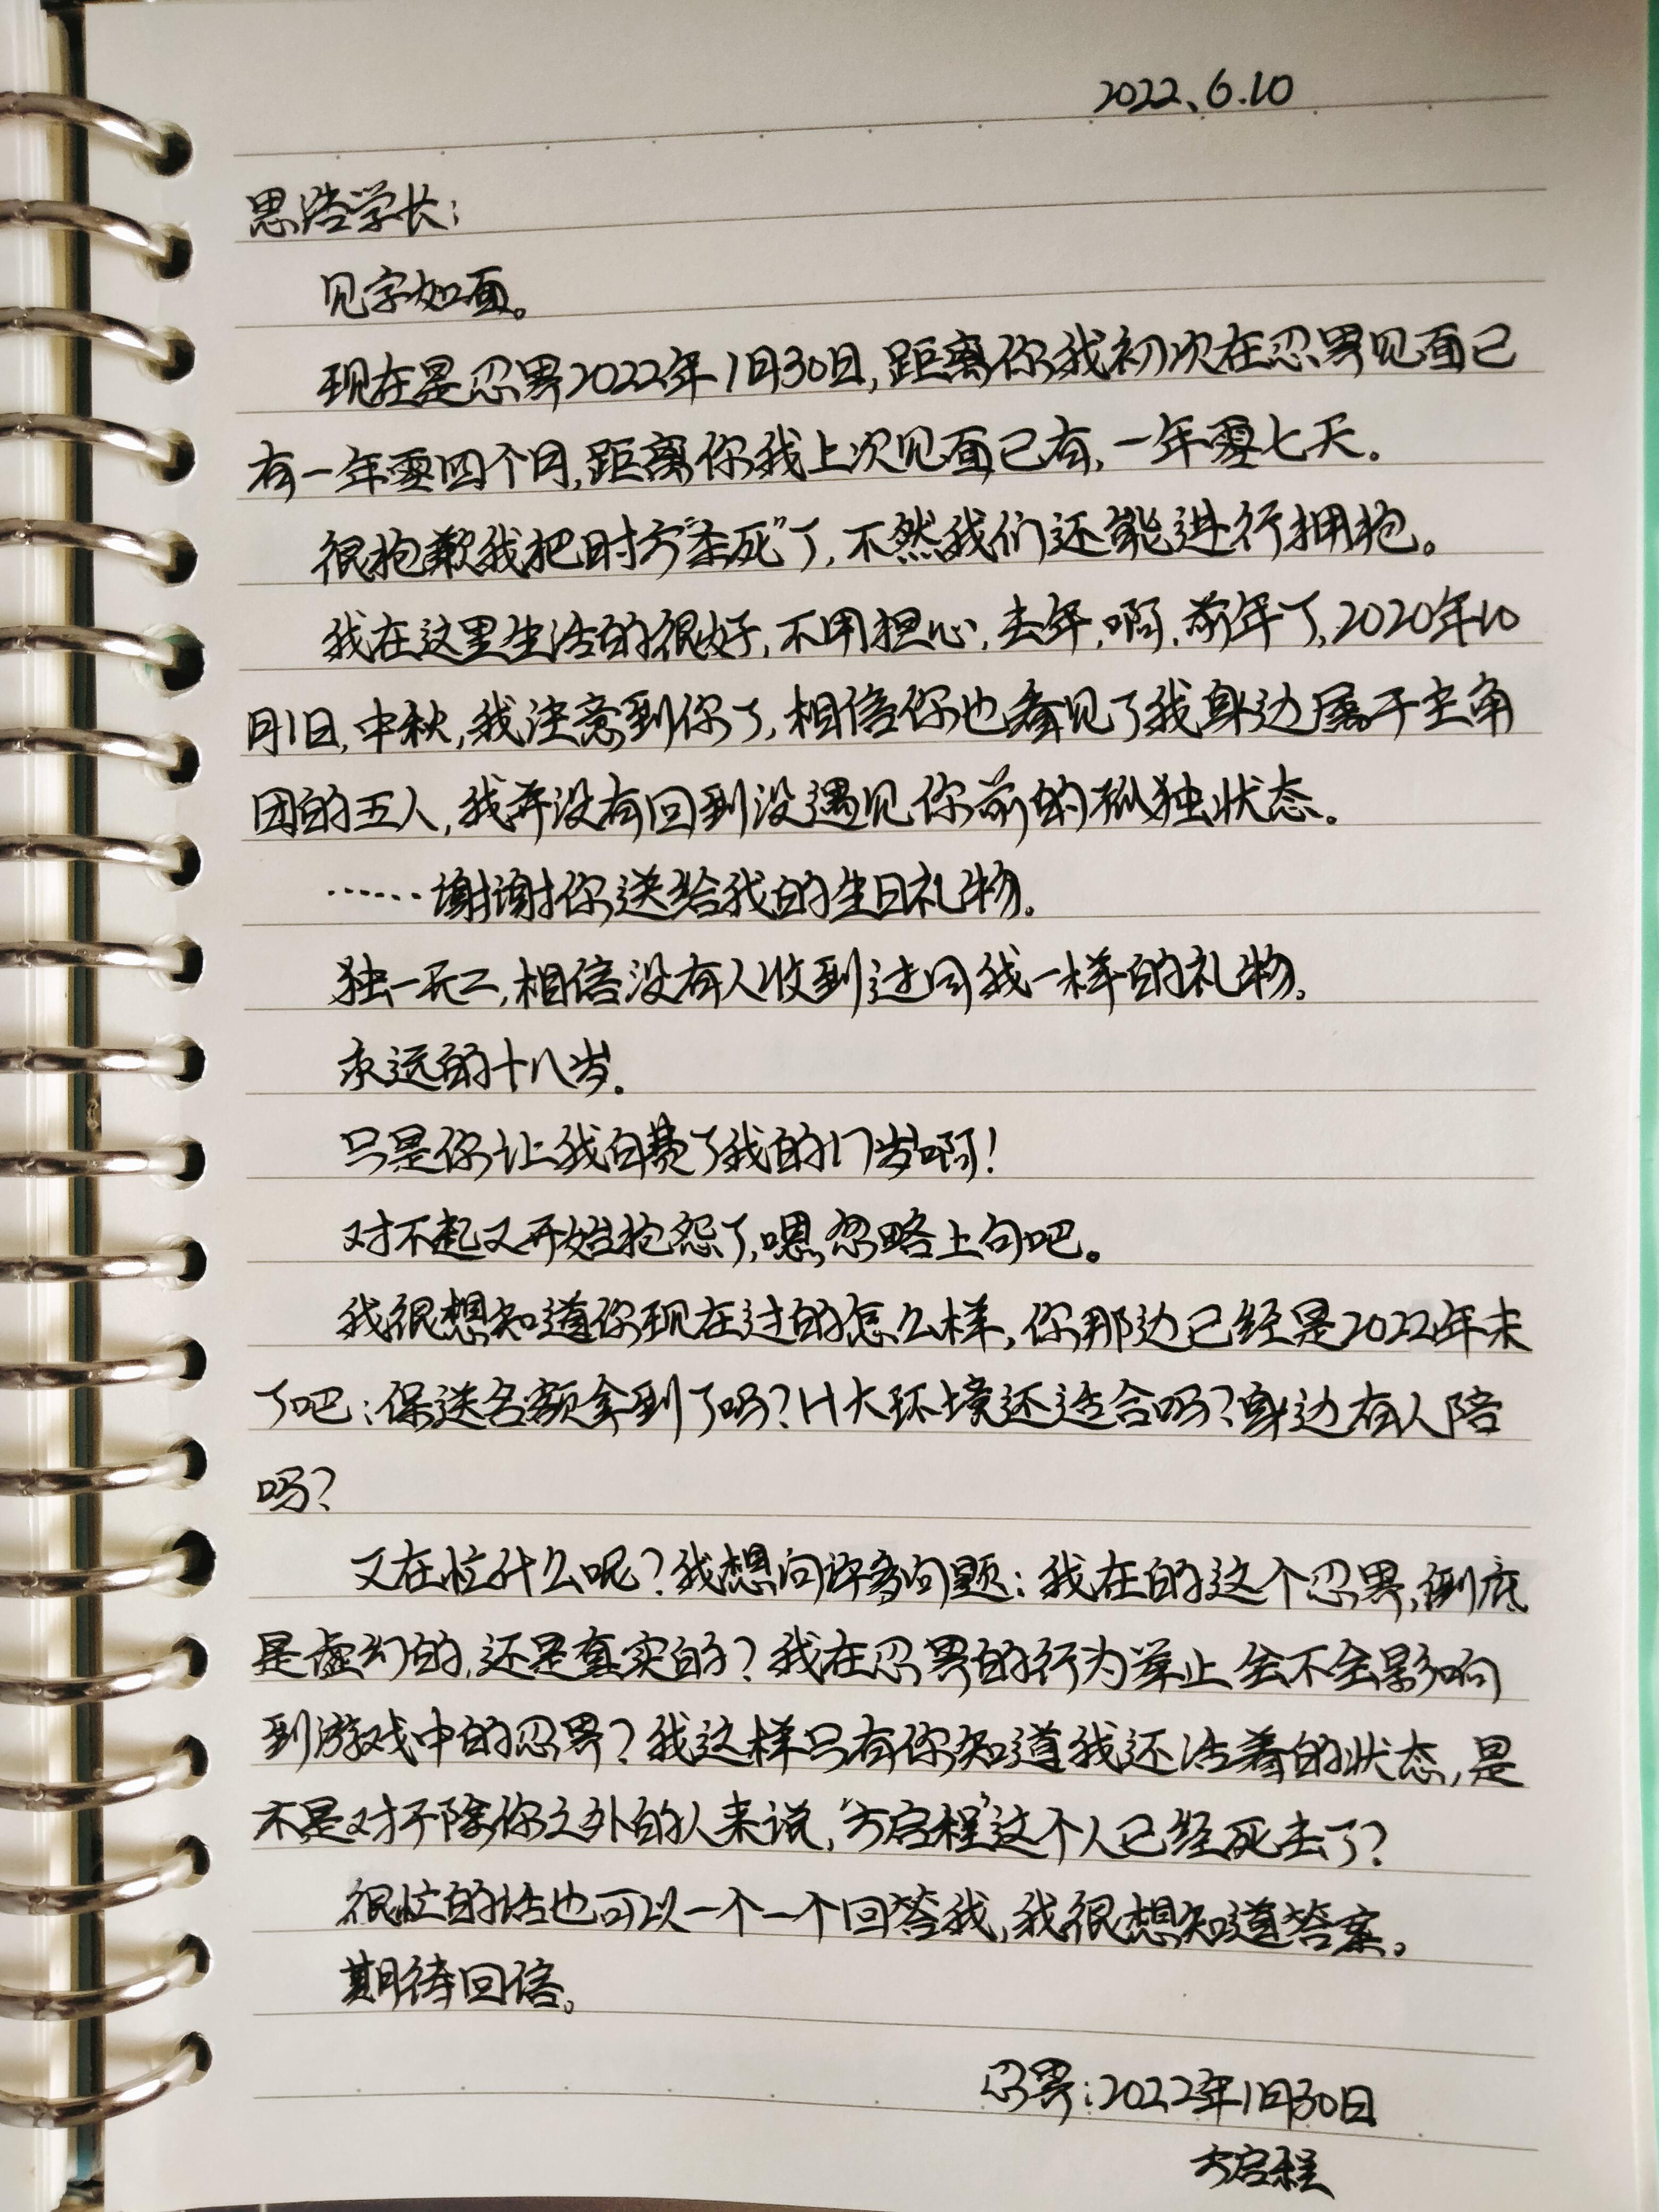 2022、6.10
思浩学长：
见字如面。
现在是忍界2022年1月30日，距离你我初次在忍界见面已
有一年零四个月，距离你我上次见面已有，一年零七天。
很抱歉我把时方“杀死”了，不然我们还能进行拥抱。
我在这里生活的很好，不用担心，去年，啊，前年了，2020年10
月1日，中秋，我注意到你了，相信你也看见了我身边属于主角
团的五人，我并没有回到没遇见你前的孤独状态。
……谢谢你送给我的生日礼物。
独一无二，相信没有人收到过同我一样的礼物。
永远的十八岁。
只是你让我白费了我的17岁啊！
对不起又开始抱怨了，嗯，忽略上句吧。
我很想知道你现在过的怎么样，你那边已经是2022年末
了吧：保送名额拿到了吗？H大环境还适合吗？身边有人陪
吗？
又在忙什么呢？我想问许多问题：我在的这个忍界，倒底
是虚幻的，还是真实的？我在忍界的行为举止会不会影响
到游戏中的忍界？我这样只有你知道我还活着的状态，是
不是对于除你之外的人来说，“方启程”这个人已经死去了？
很忙的话也可以一个一个回答我，我很想知道答案。
期待回信。
忍界：2022年1月30日
方启程